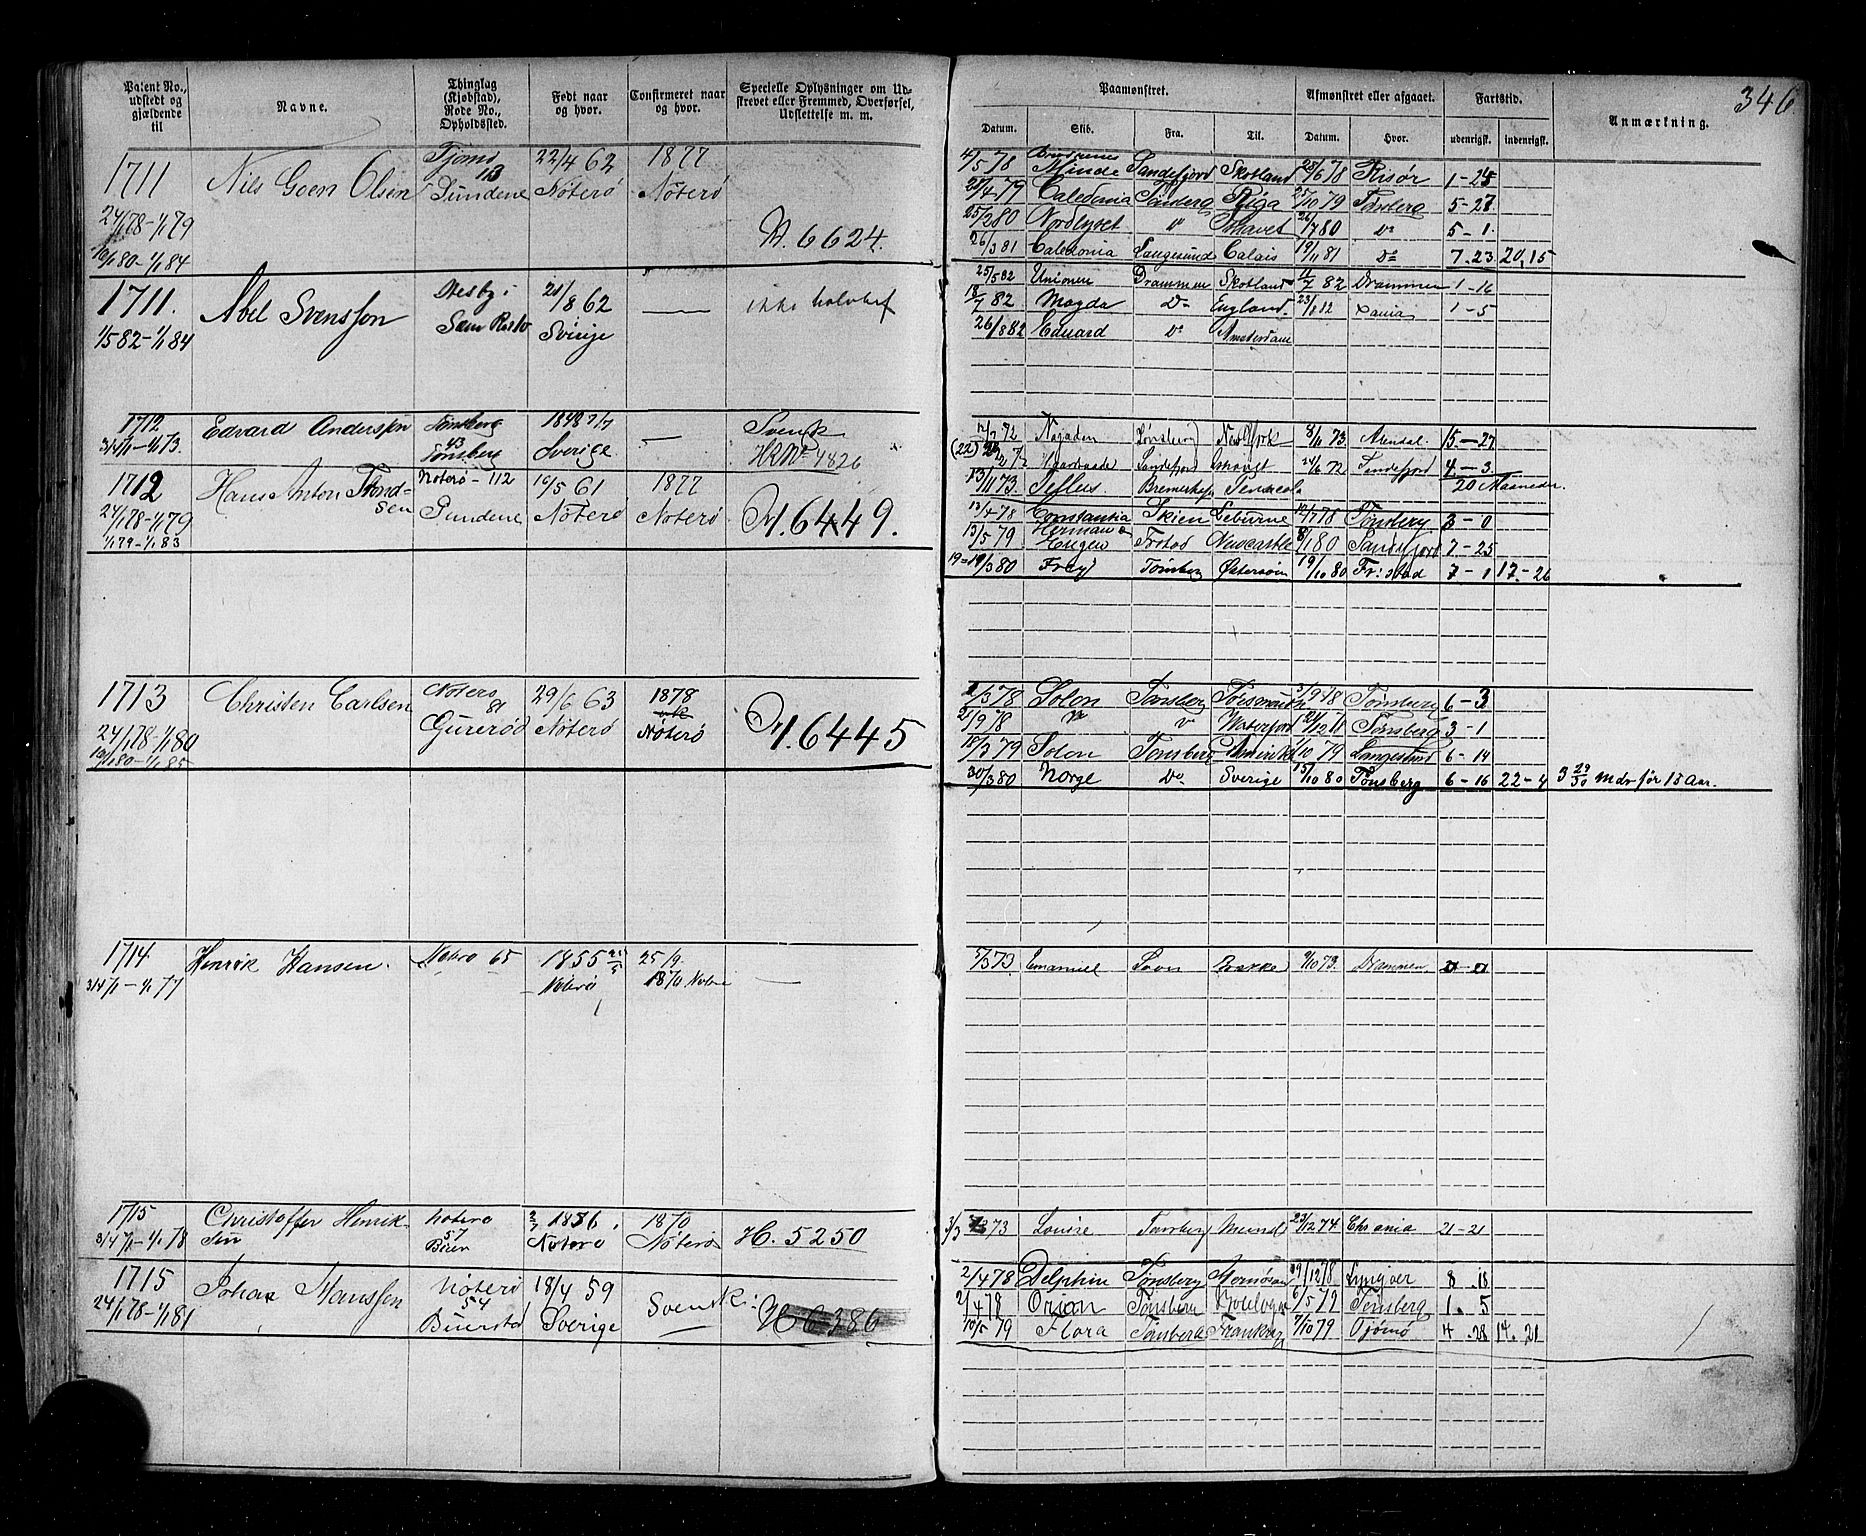 346.
Patent No., udstedt og gjældende til
Navne.
Thinglag (Kjøbstad), Rode No., Opholdssted.
Født naar og hvor.
Confirmeret naar og hvor.
Specielle Oplysninger om Udskrevet eller Fremmed, Overførsel, Udslettelse m. m.
Paamønstret.
Afmønstret eller afgaaet.
Fartstid.
Anmærkning.
Datum. Skib. Fra. Til. Datum. Hvor. udenrigsk. indenrigsk.
1711 Nils Goen Olsen Tjømø 113 Sundene 22/4 62 Nøterø 1877 Nøterø M. 6624.
24/1 78-1/1 79
10/1 80-1/1 84
4/5 78 Brødrenes Minde Sandefjord Skotland 28/6 78 Risør 1-25
28/4 79 Caledonia Tønsberg Riga 25/10 79 Tønsberg 5-27
25/2 80 Nordlyset " Ishavet 26/7 80 Do 5-1
26/3 81 Caledonia Langesund Calais 19/11 81 Do 7.23 20,15
1711. Abel Svensson Sem 21/8 62 Sverige —
1/5 82-1/1 84
25/5 82 Unionen Drammen Skotland 11/7 82 Drammen 1-16
18/7 82 Magda Do England 1-5
26/8 82 Eduard Do Amsterdam
1712 Edvard Anderssen Tønsberg 43 Tønsberg 1848 7/7 Sverige — Svensk 4826
3/4 71-1/1 73.
Tønsberg New York 8/11 73 Arendal 15-27
Sandefjord Ishavet 24/6 72 Sandefjord 4-3
13/11 73 Bremerhafn 20 Maaneder
1712 Hans Anton Trondsen Nøterø-112 Sundene 19/5 61 Nøterø 1877 Nøterø M. 6449.
24/1 78-1/1 79
1/1 79-1/1 83
13/4 78 Constantia Skien 12/7 78 Tønsberg 3-0
13/5 79 Herman Newcastle 8/1 80 Sandefjord 7-25
19/3 80 Frey Tønsberg Østersøen 19/10 80 Fr:stad 7-1 17-26
1713 Christen Carlsen Nøterø 81 Gurerød 29/6 63 Nøterø 1878 Nøterø M. 6445
24/1 78-1/1 80
10/1 80-1/1 85
2/3 78 Solon Tønsberg 3/9 78 Tønsberg 6-3
2/9 78 " " Waterford Tønsberg 3-1
18/3 79 Solon Tønsberg Amerika 1/10 79 Langesund 6-14
30/3 80 Norge Do Sverige 15/10 80 Tønsberg 6-16 22-4 3 29/30 mdr før 15 Aar.
1714 Henrik Hansen. Nøterø 65 1855 Nøterø 25/9. 1870 Nøterø —
3/4 71-1/1 77
5/3 73 Emanuel 9/10 73. Drammen
1715 Christoffer Henriksen Nøterø 57 Buen 1856. Nøterø 1870 Nøterø H. 5250
3/4 71-1/1 78
73 Louise Tønsberg 23/12 74 Chrania 21-21
1715 Johan Hanssen Nøterø 54 Buerstad 18/4 59 Sverige Svensk. H 6386
24/1 78-1/1 81
2/4 78 Delphin Tønsberg 19/12 78 Lyngøer 8.18
2/4 78 Orion Tønsberg 6/5 79 Tønsberg 1.5
10/5 79 Flora Tønsberg Frankrig 7/10 79 Tjømø 4.28 14.21